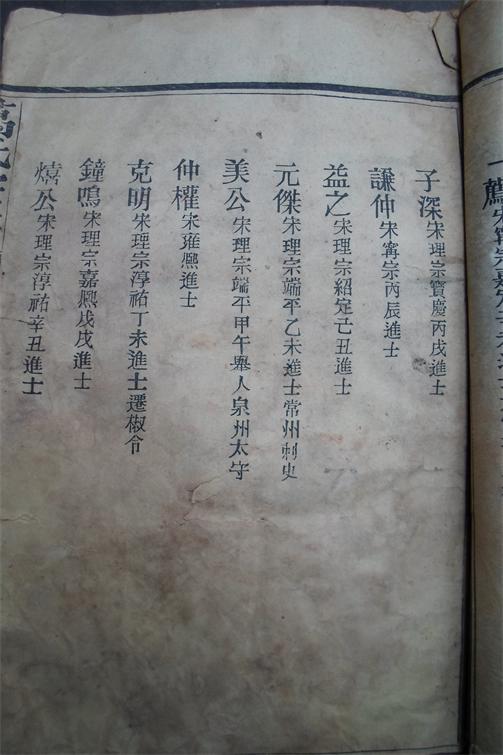 子深宋理宗寳慶丙戌進士
謙仲宋寗宗丙辰進士
益之宋理宗紹定己丑進士
元傑宋理宗端平乙未進士常州刺史
美公宋理宗端平甲午舉人泉州太守
仲權宋雍熙進士
克明宋理宗淳祐丁未進士遷椒令
鐘鳴宋理宗嘉熙戊戌進士
熺公宋理宗淳祐辛丑進士